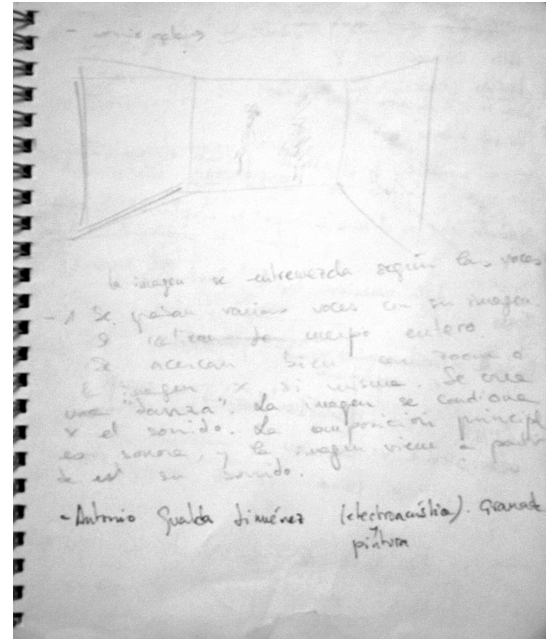 la imagen se entremezcla según las voces
- 1 Se graban varias voces con su imagen
de cuerpo entero.
Se acercan bien con zoom o
imagen x si misma. Se crea
una "danza". La imagen se condiciona
x el sonido. La composición principal
es sonora, y la imagen viene a partir
de est su sonido.
- Antonio Gualda Jiménez (electroacústica). Granada
y
pintura